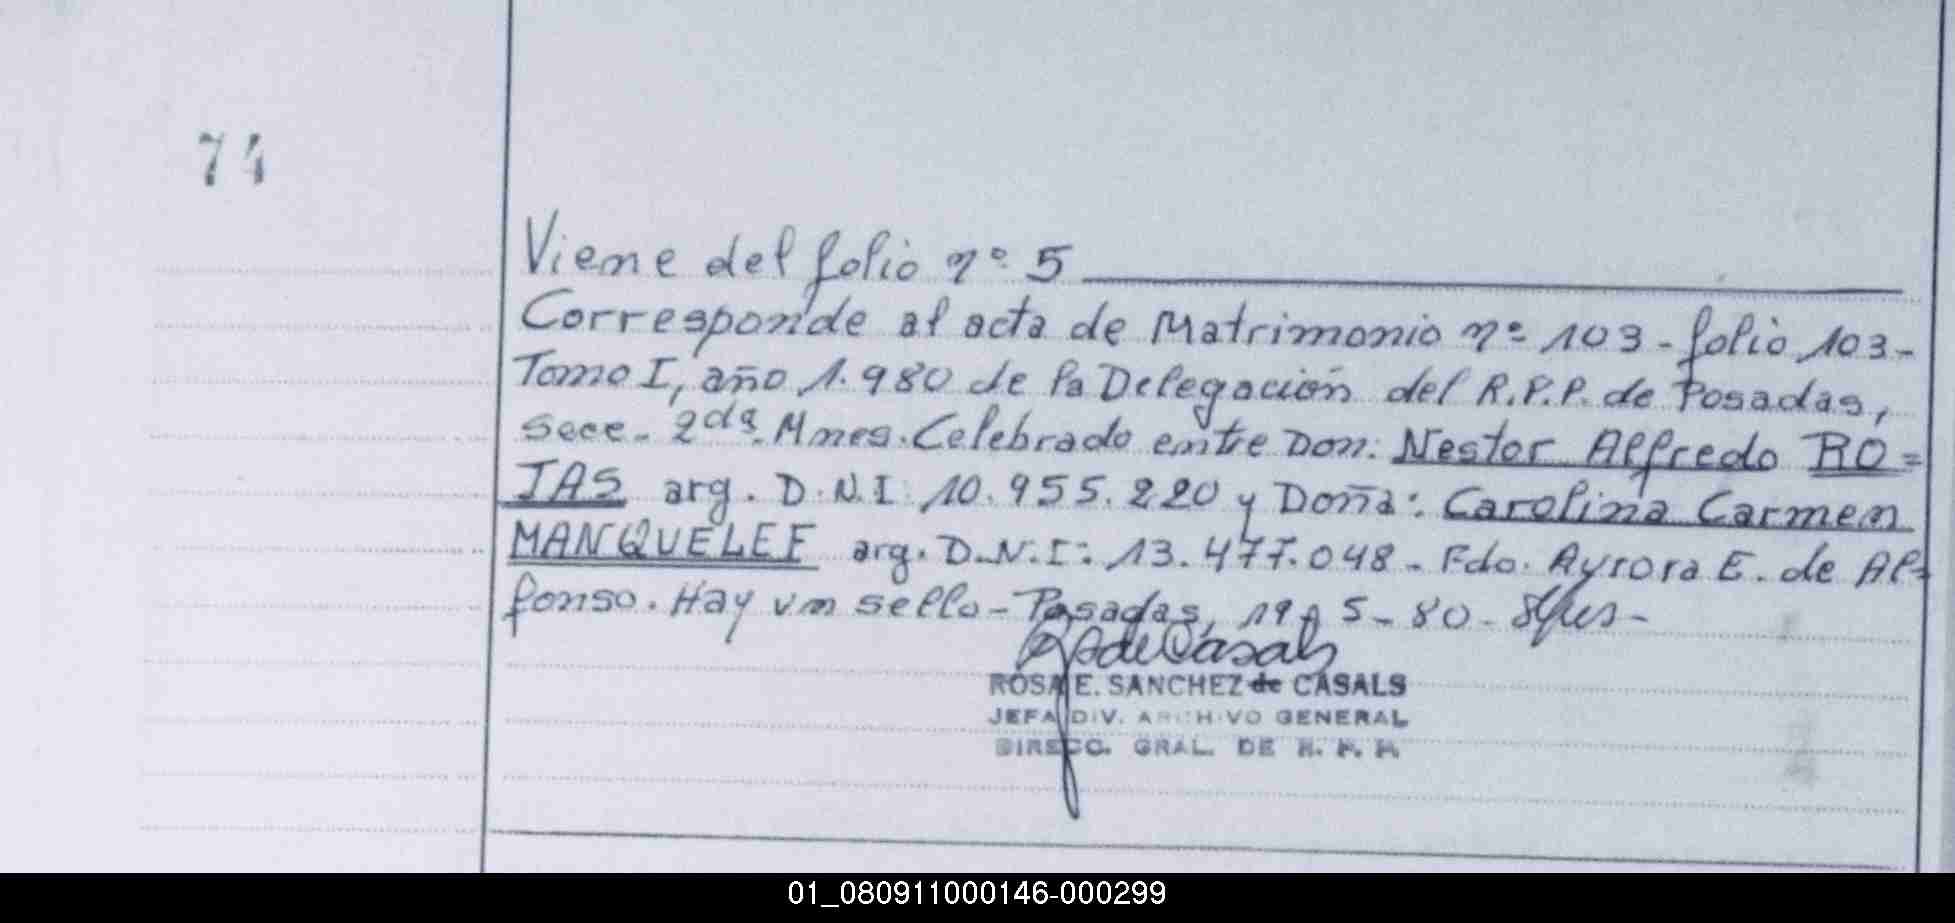 74
Viene del folio nº 5
Corresponde al acta de Matrimonio nº 103 - folio 103 -
Tomo I, año 1.980 de la Delegación del R.P.P. de Posadas,
Secc. 2da. Mnes. Celebrado entre Don: Nestor Alfredo RO=
JAS arg. D.N.I: 10.955.220 y Doña: Carolina Carmen
MANQUELEF arg. D.N.I: 13.477.048 - Fdo. Aurora E. de Al=
fonso. Hay un sello - Posadas, 19 5 - 80 -
de Casals
ROSA E. SANCHEZ de CASALS
JEFA DIV. ARCHIVO GENERAL
DIRECC. GRAL. DE R. P. P.
01_080911000146-000299